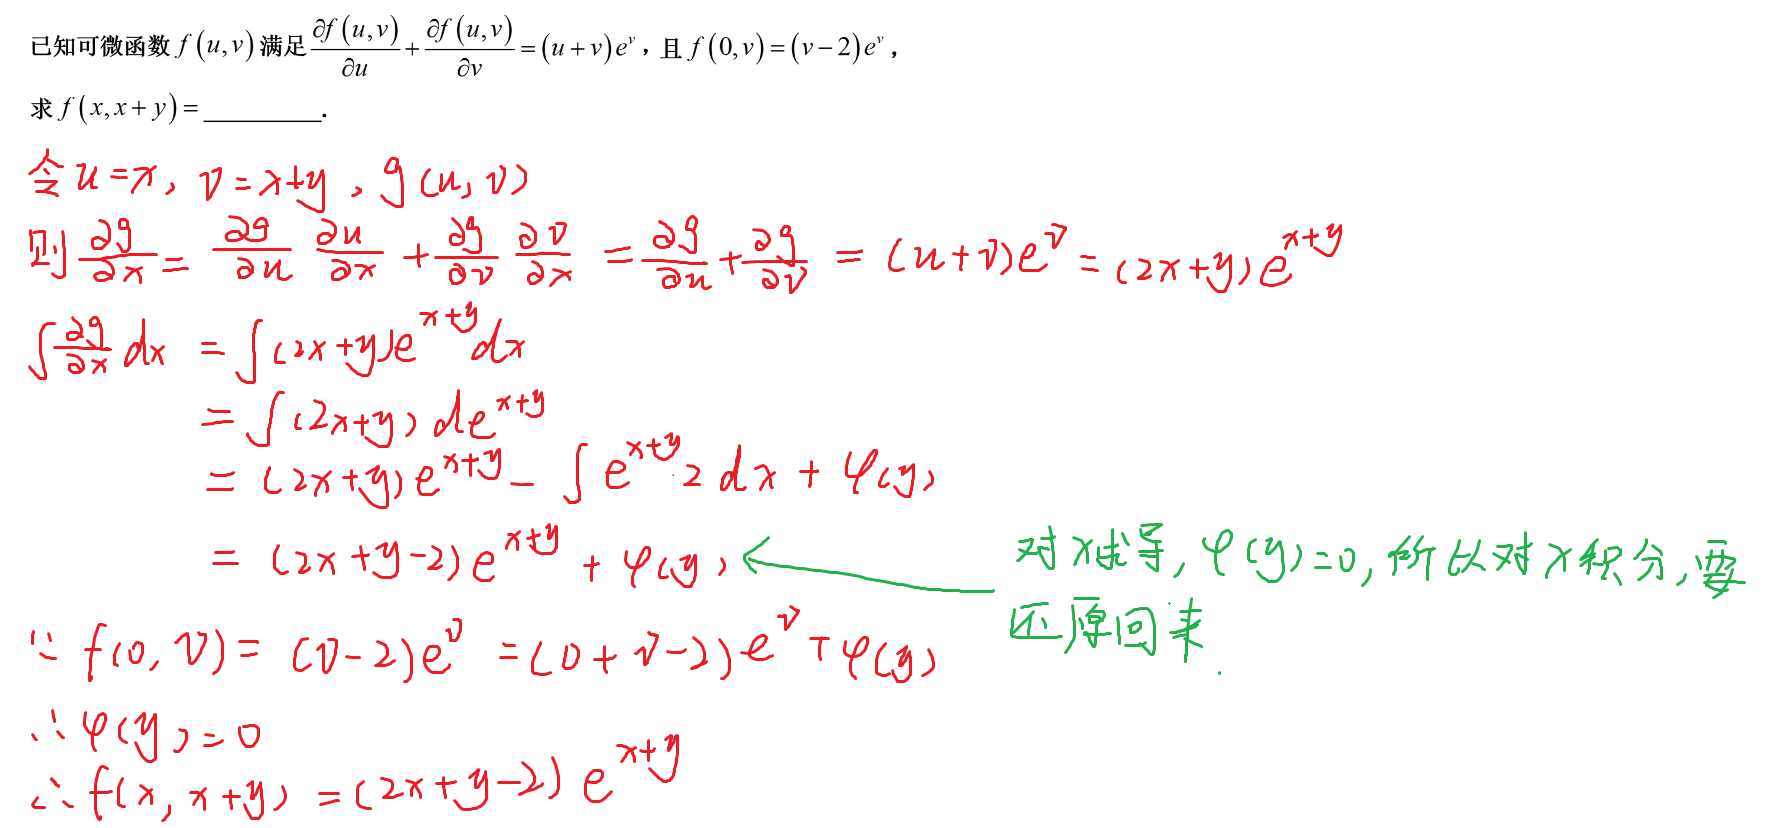 已知可微函数 f(u,v) 满足 ∂f(u,v)/∂u + ∂f(u,v)/∂v = (u+v)e^v，且 f(0,v)=(v−2)e^v，
求 f(x,x+y)=________.
令 u=x, v=x+y, g(u,v)
则 ∂g/∂x = ∂g/∂u ∂u/∂x + ∂g/∂v ∂v/∂x = ∂g/∂u + ∂g/∂v = (u+v)e^v = (2x+y)e^{x+y}
∫ ∂g/∂x dx = ∫(2x+y)e^{x+y}dx
= ∫(2x+y) de^{x+y}
= (2x+y)e^{x+y} − ∫e^{x+y}·2dx + φ(y)
= (2x+y−2)e^{x+y} + φ(y)
对x求导, φ(y)=0, 所以对x积分, 要
还原回来.
∵ f(0,v) = (v−2)e^v = (0+v−2)e^v + φ(y)
∴ φ(y)=0
∴ f(x, x+y) = (2x+y−2)e^{x+y}